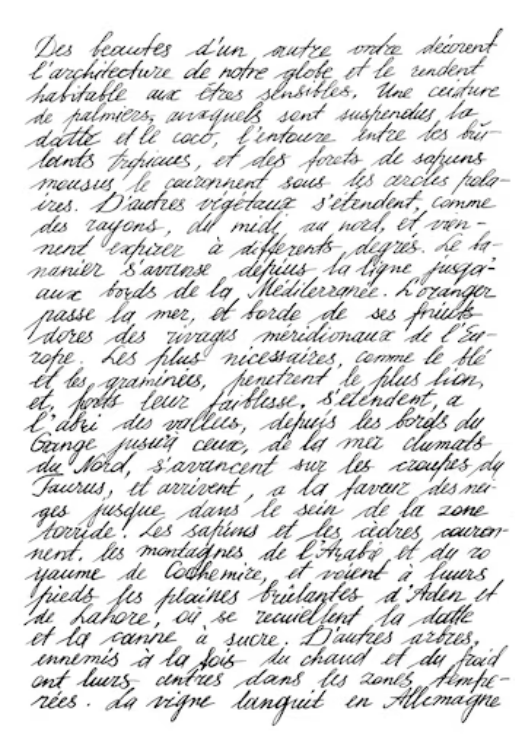 Des beautes d'un autre ordre décorent
l'architecture de notre globe et le rendent
habitable aux êtres sensibles. Une ceidure
de palmiers, auxquels sont suspendus la
datte et le coco, l'entoure entre les brû-
lants tropiques, et des forets de sapins
mousus le couronnent sous les cercles pola-
ires. D'autres végétaux s'étendent, comme
des rayons, du midi au nord, et vien-
nent expirer à différents degrés. Le ba-
nanier s'avanse depius la ligne jusqú-
aux bords de la Méditerranée. L'oranger
passe la mer, et borde de ses fruits
dores des rivages méridionaux de l'Eu-
rope. Les plus nicessaires, comme le blé
et les graminées, penetrent le plus lion,
et, forts leur faiblesse, s'étendent, a
l'abri des vallees, depuis les bords du
Gange jusqu'à ceux, de la mer
du Nord, s'avancent sur les croupes du
Taurus, et arrivent, a la faveur des nei-
ges jusque dans le sein de la zone
torride. Les sapins et les cèdres couron-
nent. les montagnes de l'Arabie et du ro
yaume de Cachemire, et voient à leurs
pieds les plaines brûlantes d'Aden et
de Lahore, où se recueillent la datte
et la canne à sucre. D'autres arbres,
ennemis à la fois du chaud et du froid
ont leurs centres dans les zones tempe-
rées. La vigne languit en Allemagne